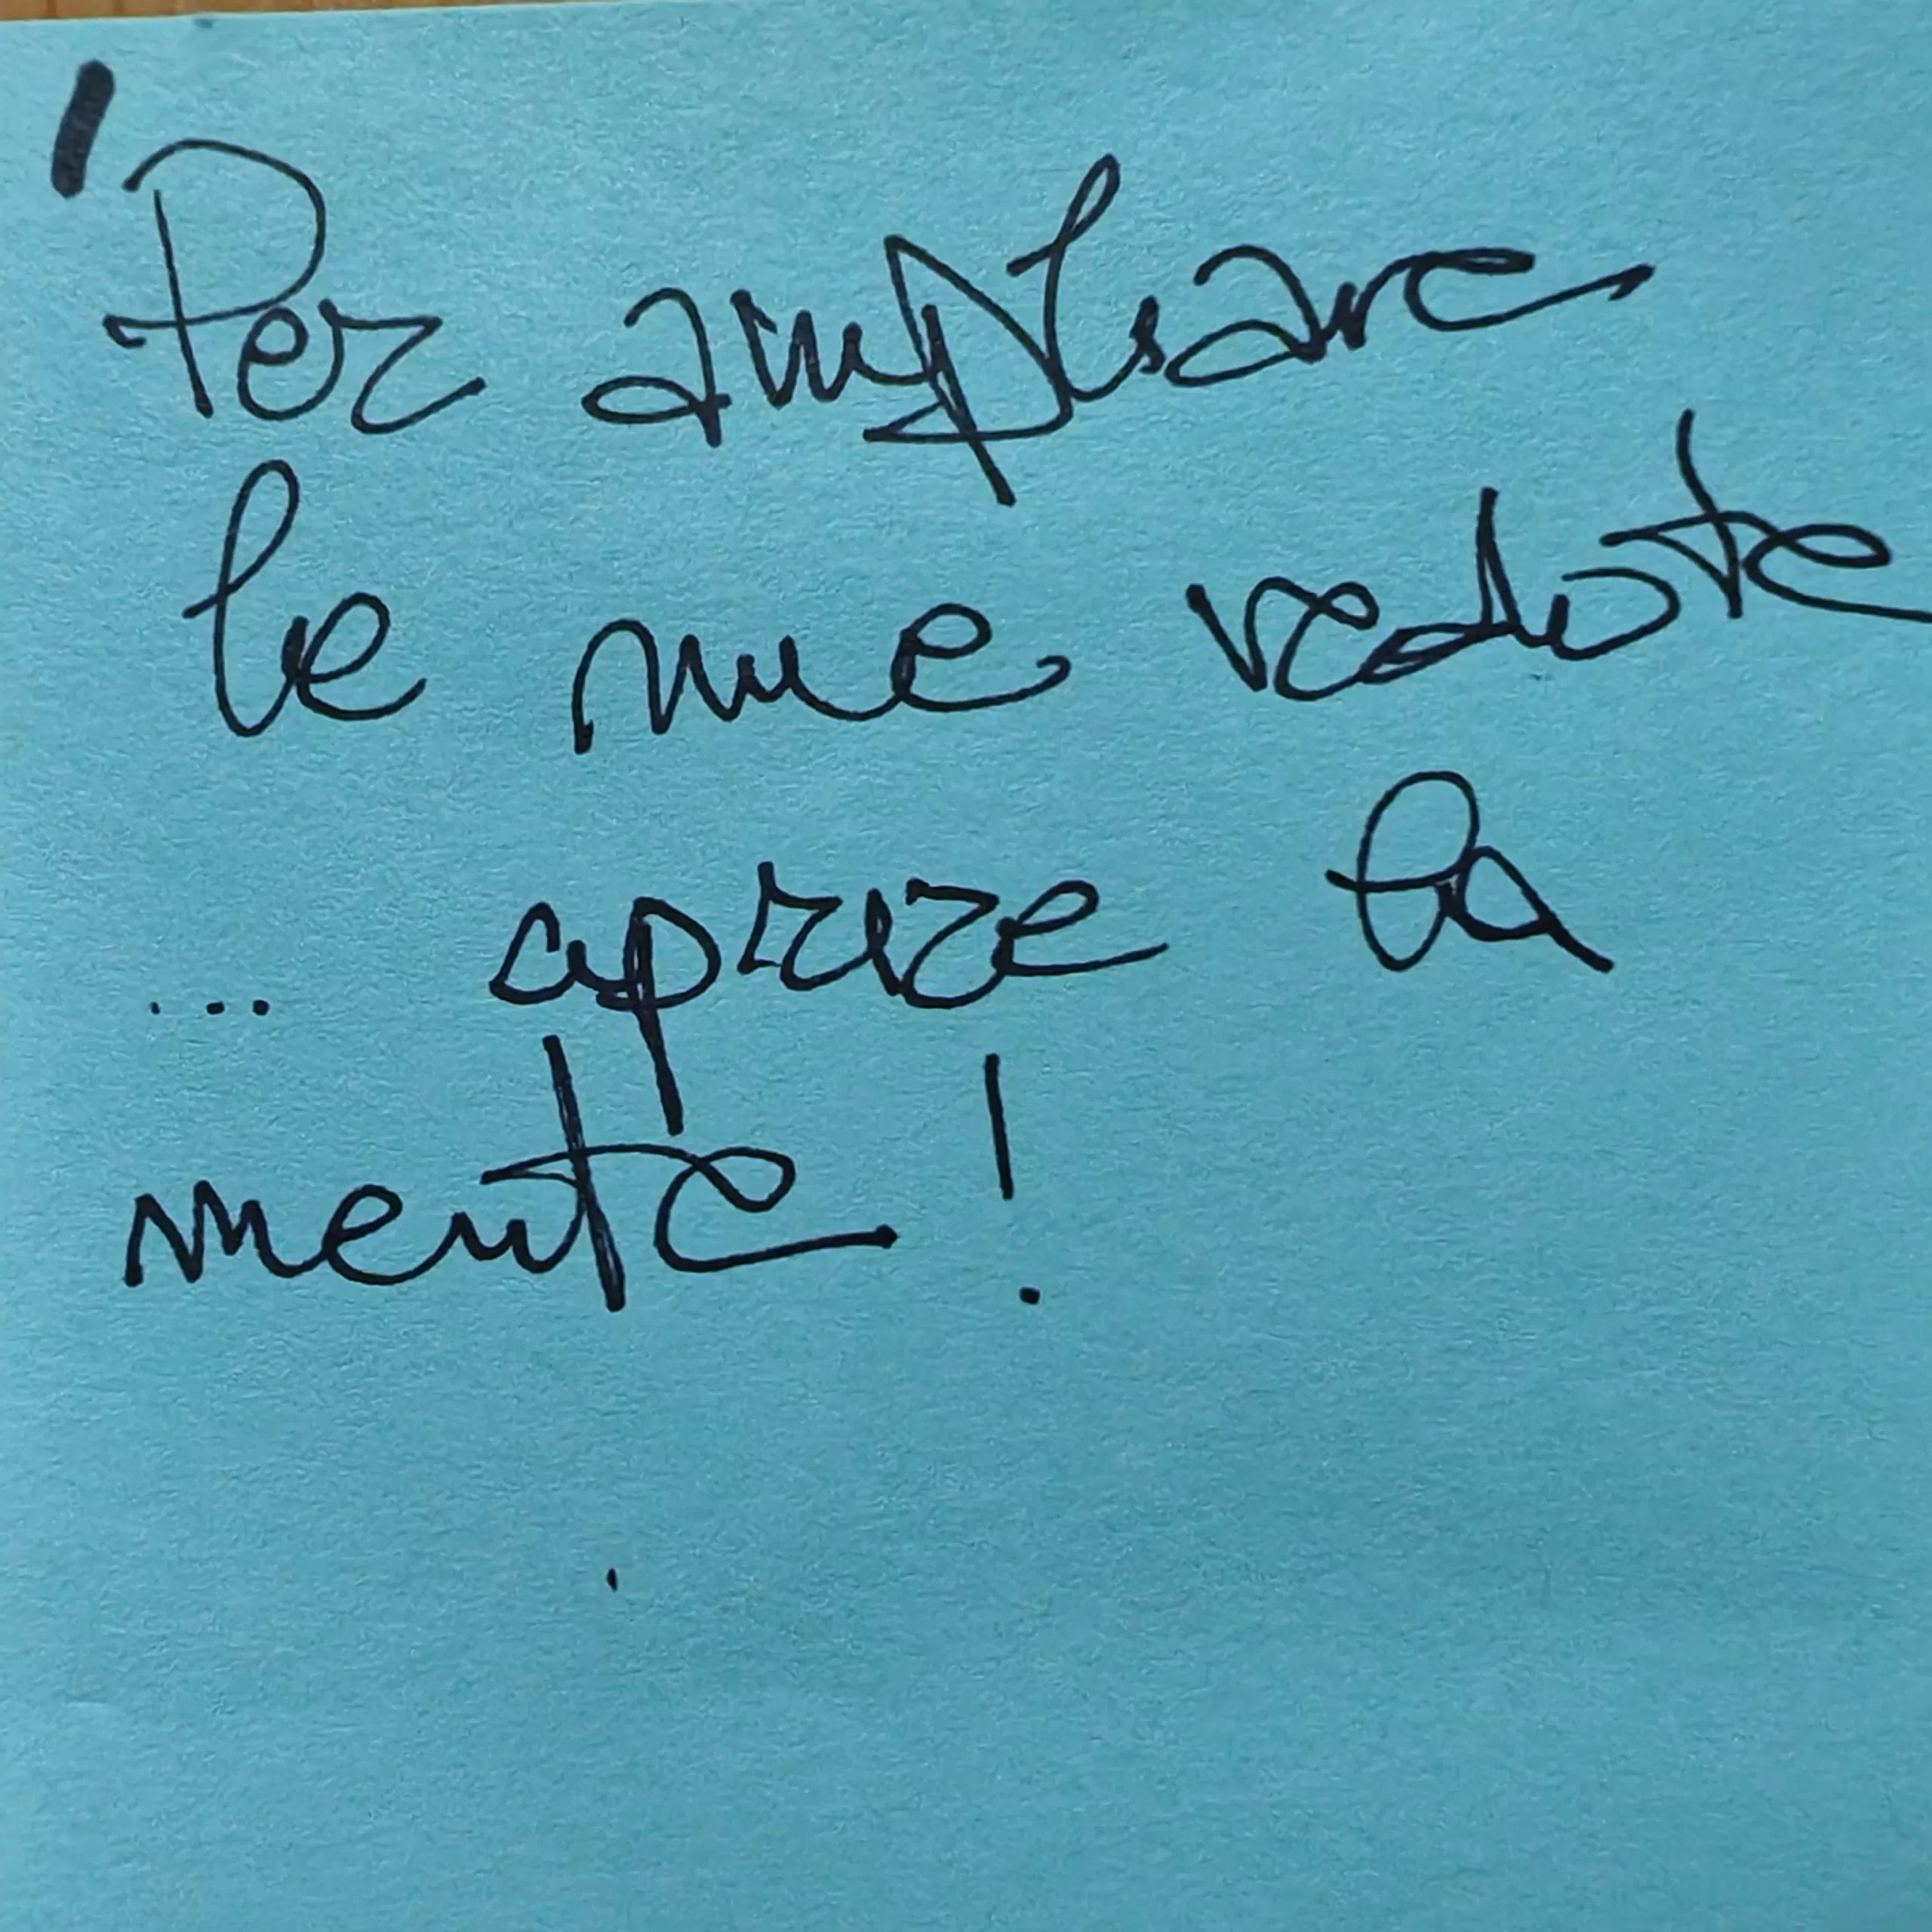 Per ampliare
le mie vedute
... aprire la
mente!